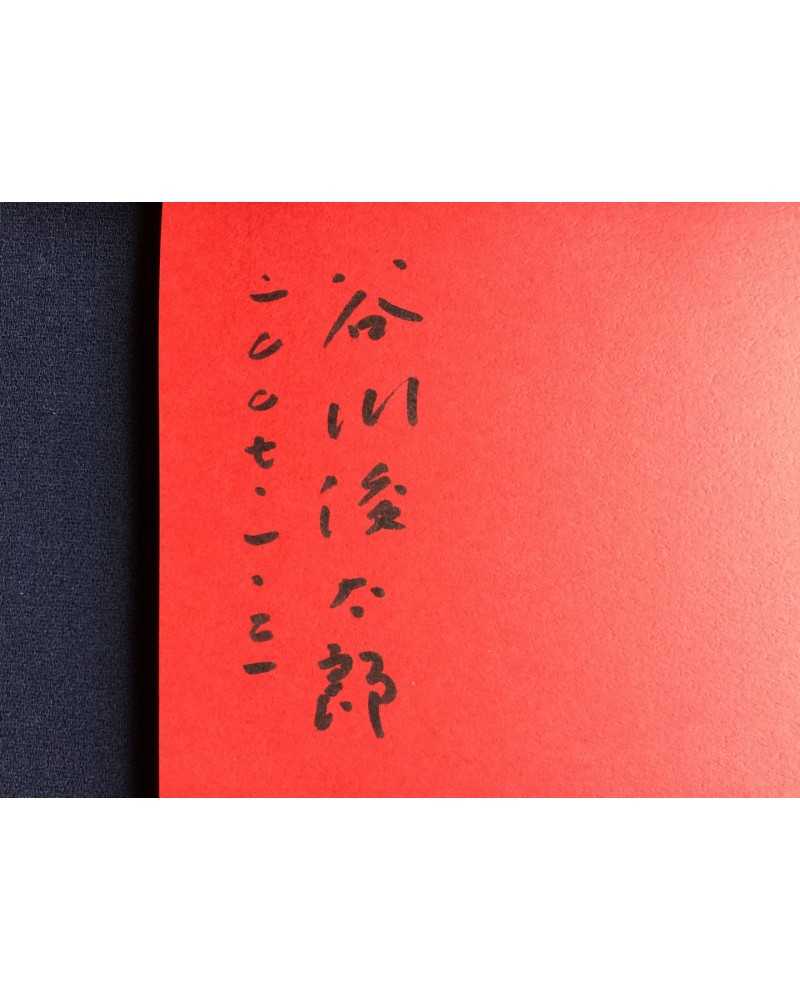 谷川俊太郎
二〇〇七・一・三一